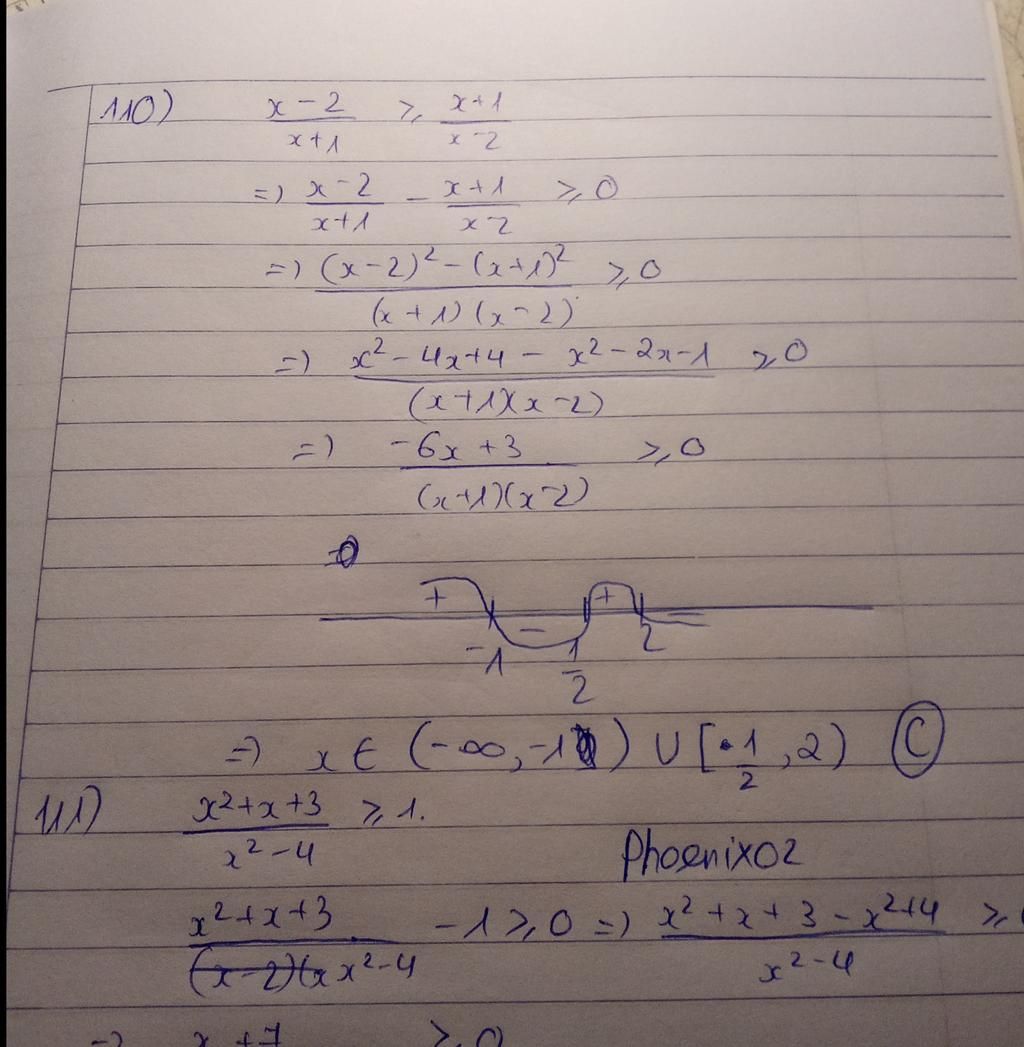 110) x-2/x+1 ≥ x+1/x-2
=> x-2/x+1 - x+1/x-2 ≥ 0
=> (x-2)² - (x+1)²/(x+1)(x-2) ≥ 0
=> x² - 4x + 4 - x² - 2x - 1/(x+1)(x-2) ≥ 0
=> -6x + 3/(x+1)(x-2) ≥ 0
+ - + -
-1 1/2 2
=> x ∈ (-∞, -1) ∪ [1/2, 2) C
111) x² + x + 3/x² - 4 ≥ 1.
Phoenix02
x² + x + 3/x² - 4 - 1 ≥ 0 => x² + x + 3 - x² + 4/x² - 4 ≥ 0
=> x + 7 ≥ 0